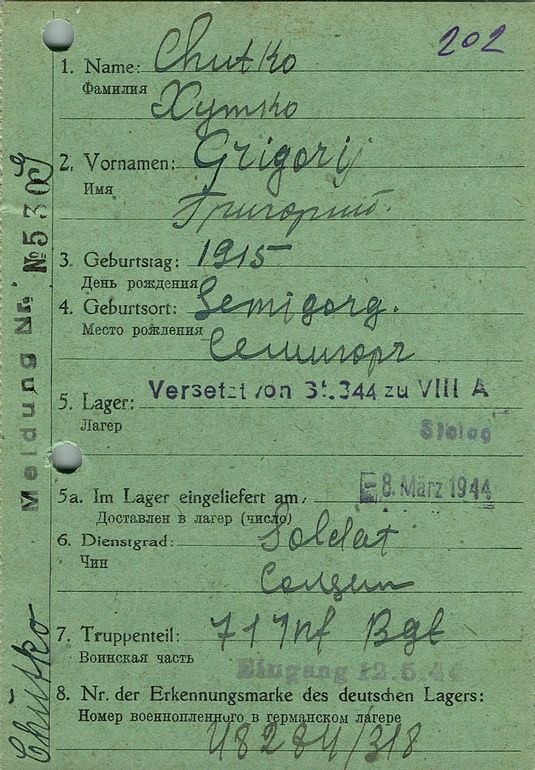 202
1. Name: Chutko
Фамилия
Хутко
2. Vornamen: Grigorij
Имя
Григорий.
3. Geburtstag: 1915
День рождения
4. Geburtsort: Semigorg.
Место рождения
Семигорг
Versetzt von St.344 zu VIII A
5. Lager:
Лагер
Stalag
5a. Im Lager eingeliefert am, 8. März 1944
Доставлен в лагер (число)
6. Dienstgrad: Soldat
Чин
Солдат
7. Truppenteil: 71 Inf Bgt
Воинская часть
Eingang 12.5.44
8. Nr. der Erkennungsmarke des deutschen Lagers:
Номер военнопленного в германском лагере
48284/318
Meldung Nr. № 5309
Chutko